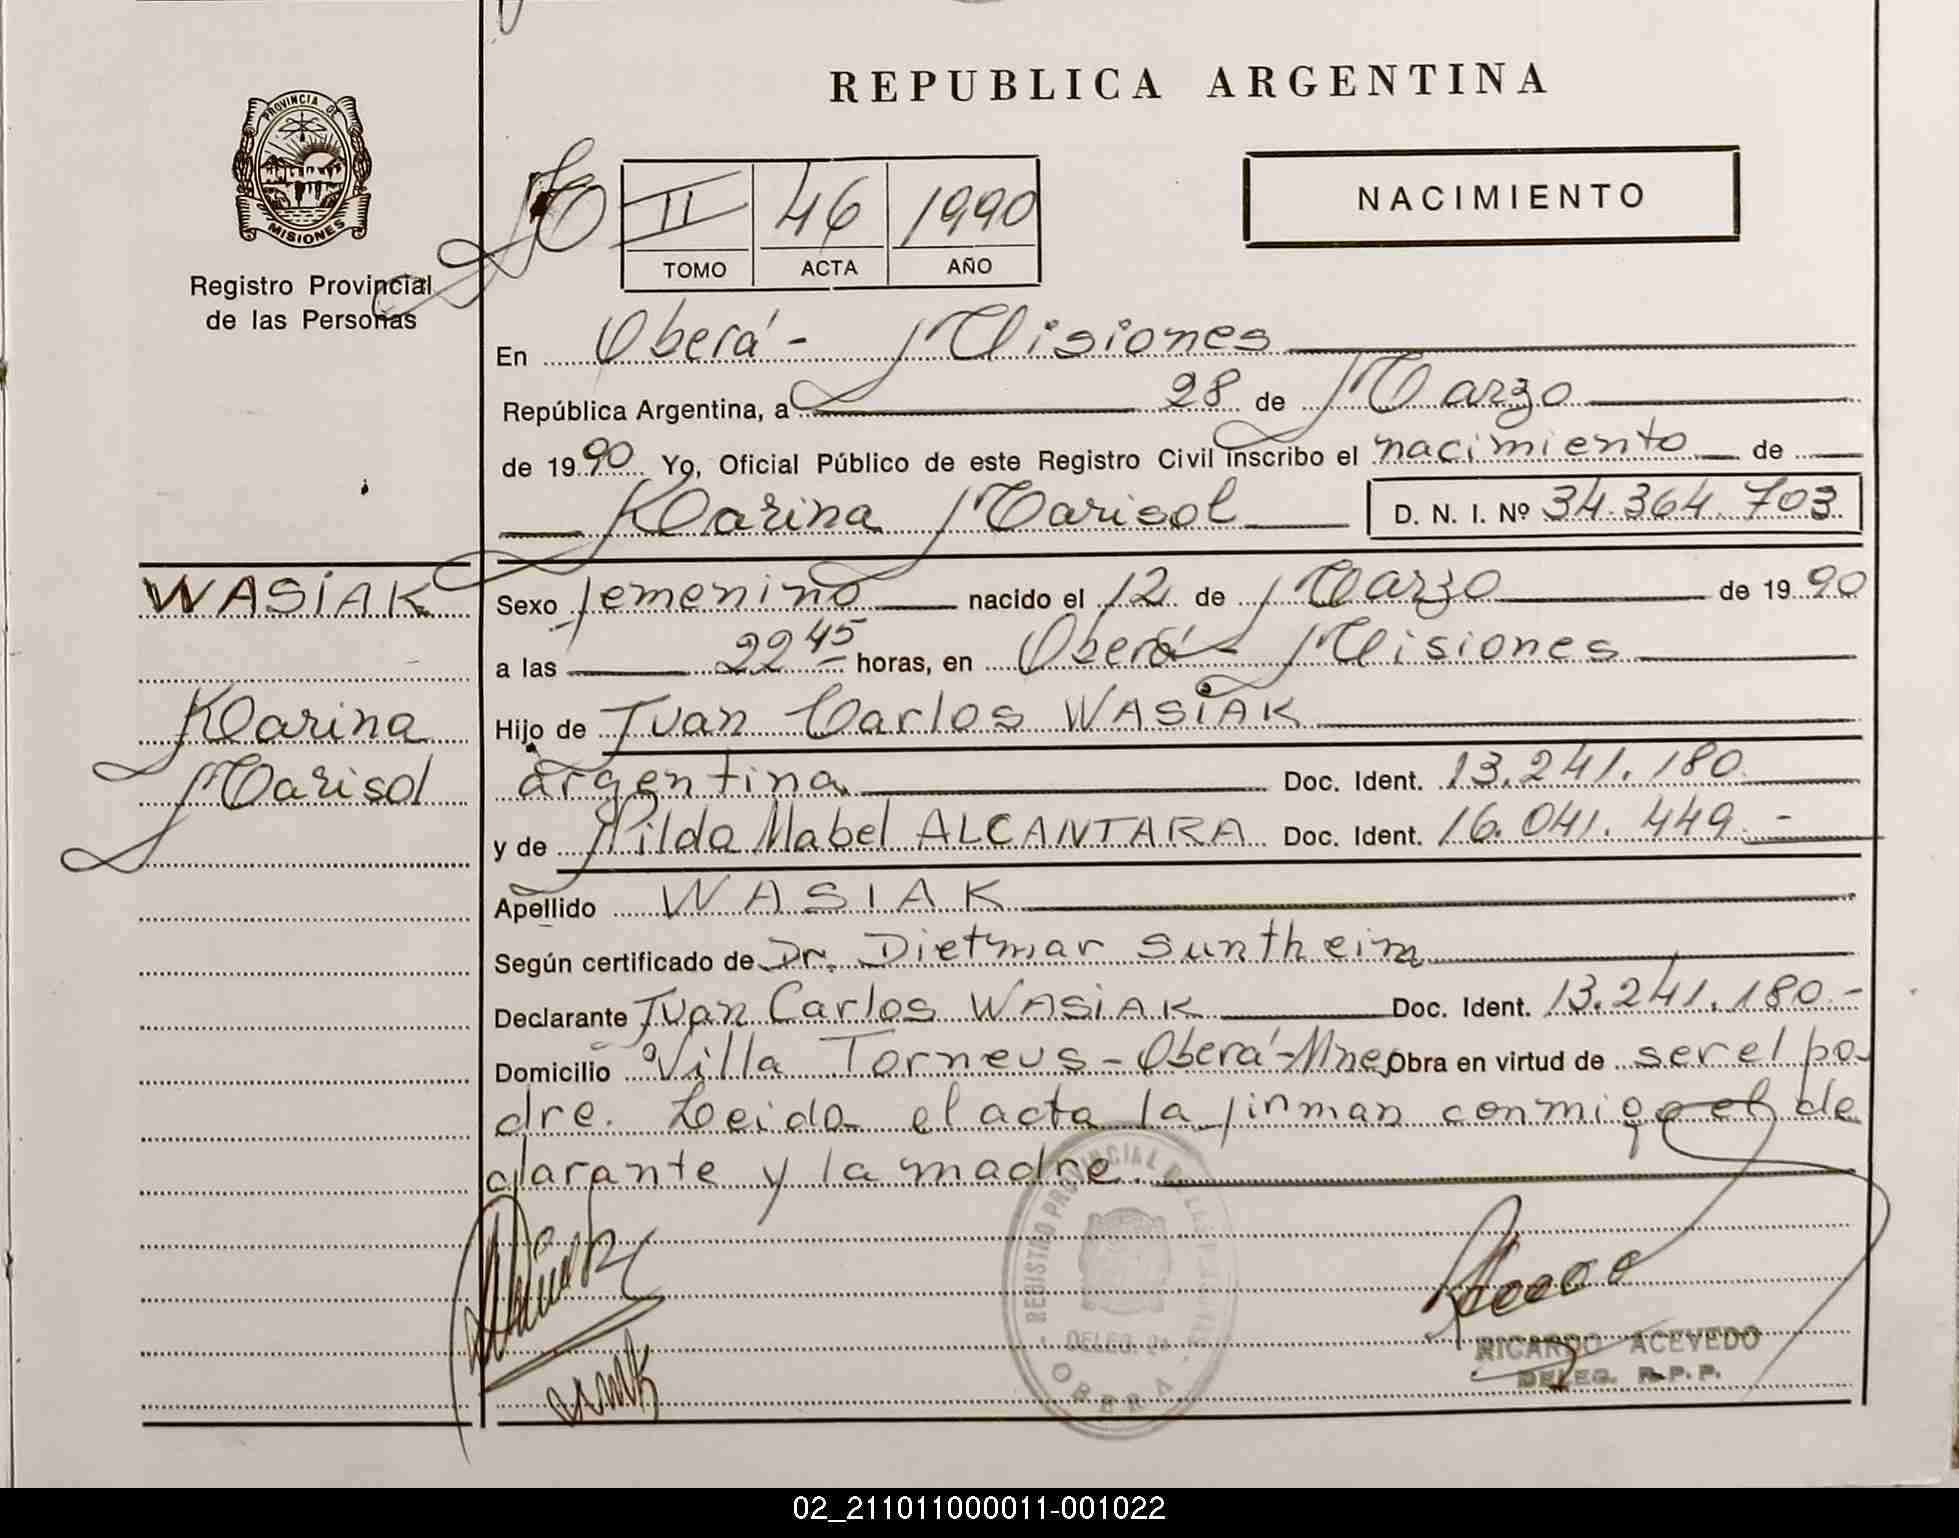 REPUBLICA ARGENTINA
PROVINCIA DE
MISIONES
Registro Provincial
de las Personas
II 46 1990
TOMO ACTA AÑO
NACIMIENTO
En Oberá - Misiones
República Argentina, a 28 de Marzo
de 1990 Yo, Oficial Público de este Registro Civil inscribo el nacimiento de
Karina Marisol D. N. I. Nº 34.364.703
WASIAK
Karina
Marisol
Sexo femenino nacido el 12 de Marzo de 1990
a las 22 45 horas, en Oberá - Misiones
Hijo de Juan Carlos WASIAK
argentina Doc. Ident. 13.241.180
y de Nilda Mabel ALCANTARA Doc. Ident. 16.041.449.-
Apellido WASIAK
Según certificado de Dr. Dietmar Suntheim
Declarante Juan Carlos WASIAK Doc. Ident. 13.241.180.-
Domicilio Villa Torneus - Oberá - Mnes Obra en virtud de ser el pa-
dre. Leida el acta la firman conmigo el de
clarante y la madre.
REGISTRO PROVINCIAL DE LAS PERSONAS
OBERA
RICARDO ACEVEDO
DELEG. R.P.P.
02_211011000011-001022